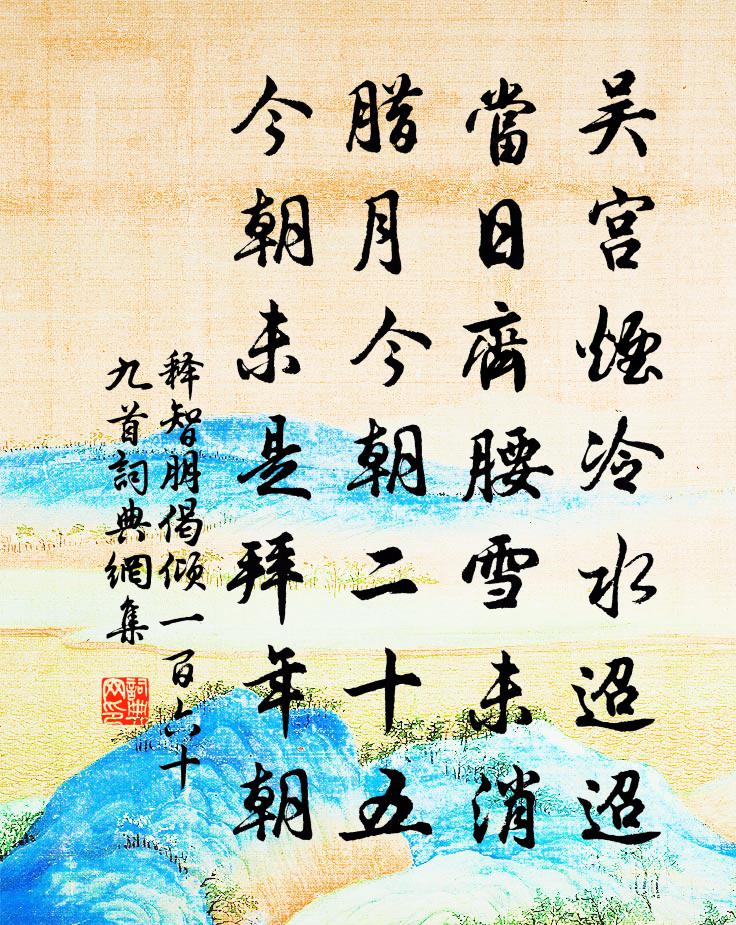 吴宫煙冷水迢迢
當日齊腰雪未消
腊月今朝二十五
今朝未是拜年朝
释智朋偈倾一百六十
九首詞典網集
詞典
网印